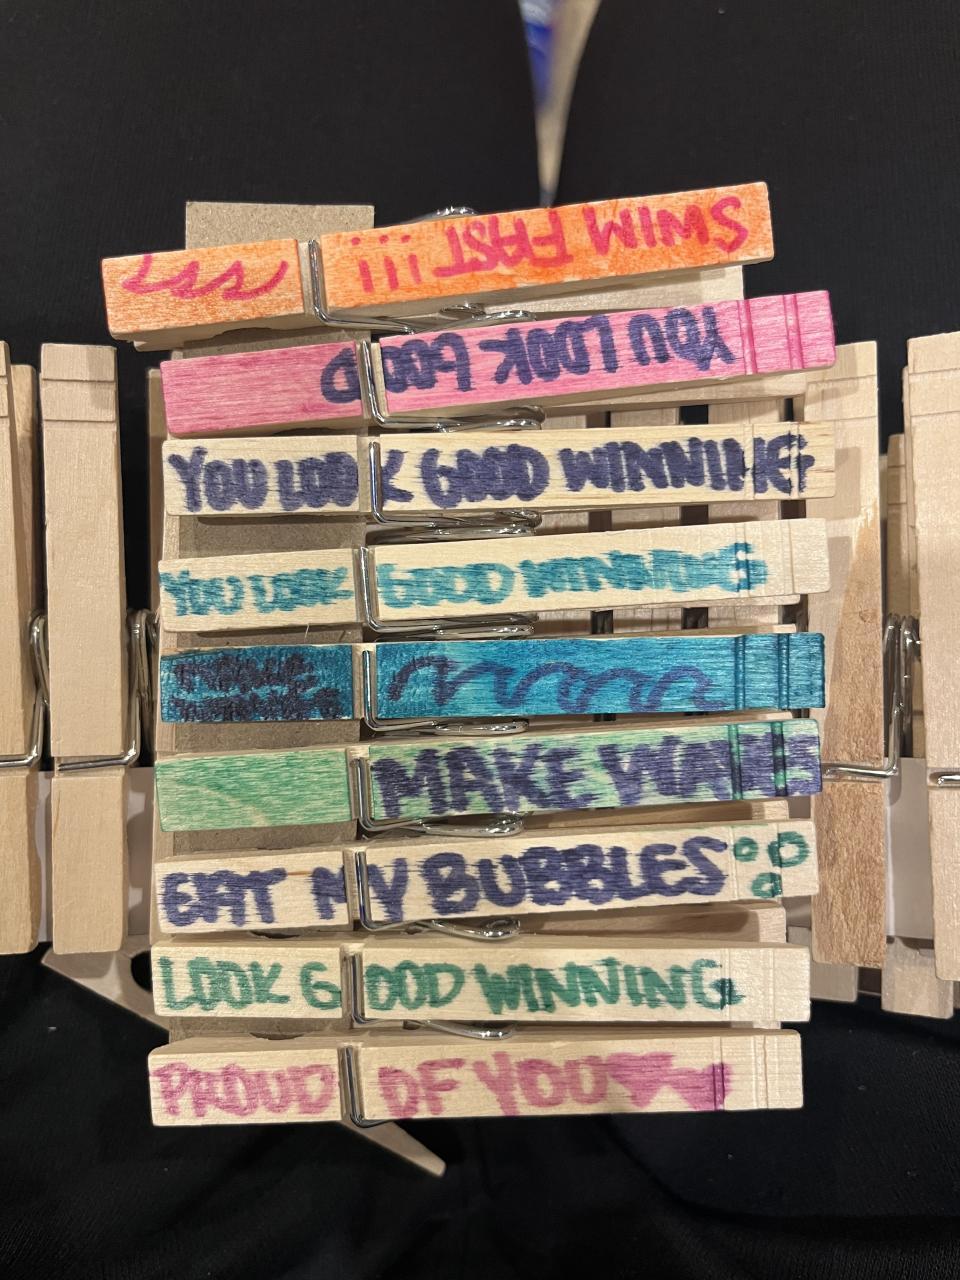 SWIM FAST!!!
YOU LOOK GOOD
YOU LOOK GOOD WINNING
YOU LOOK GOOD WINNING
MAKE WAVES
EAT MY BUBBLES
LOOK GOOD WINNING
PROUD OF YOU